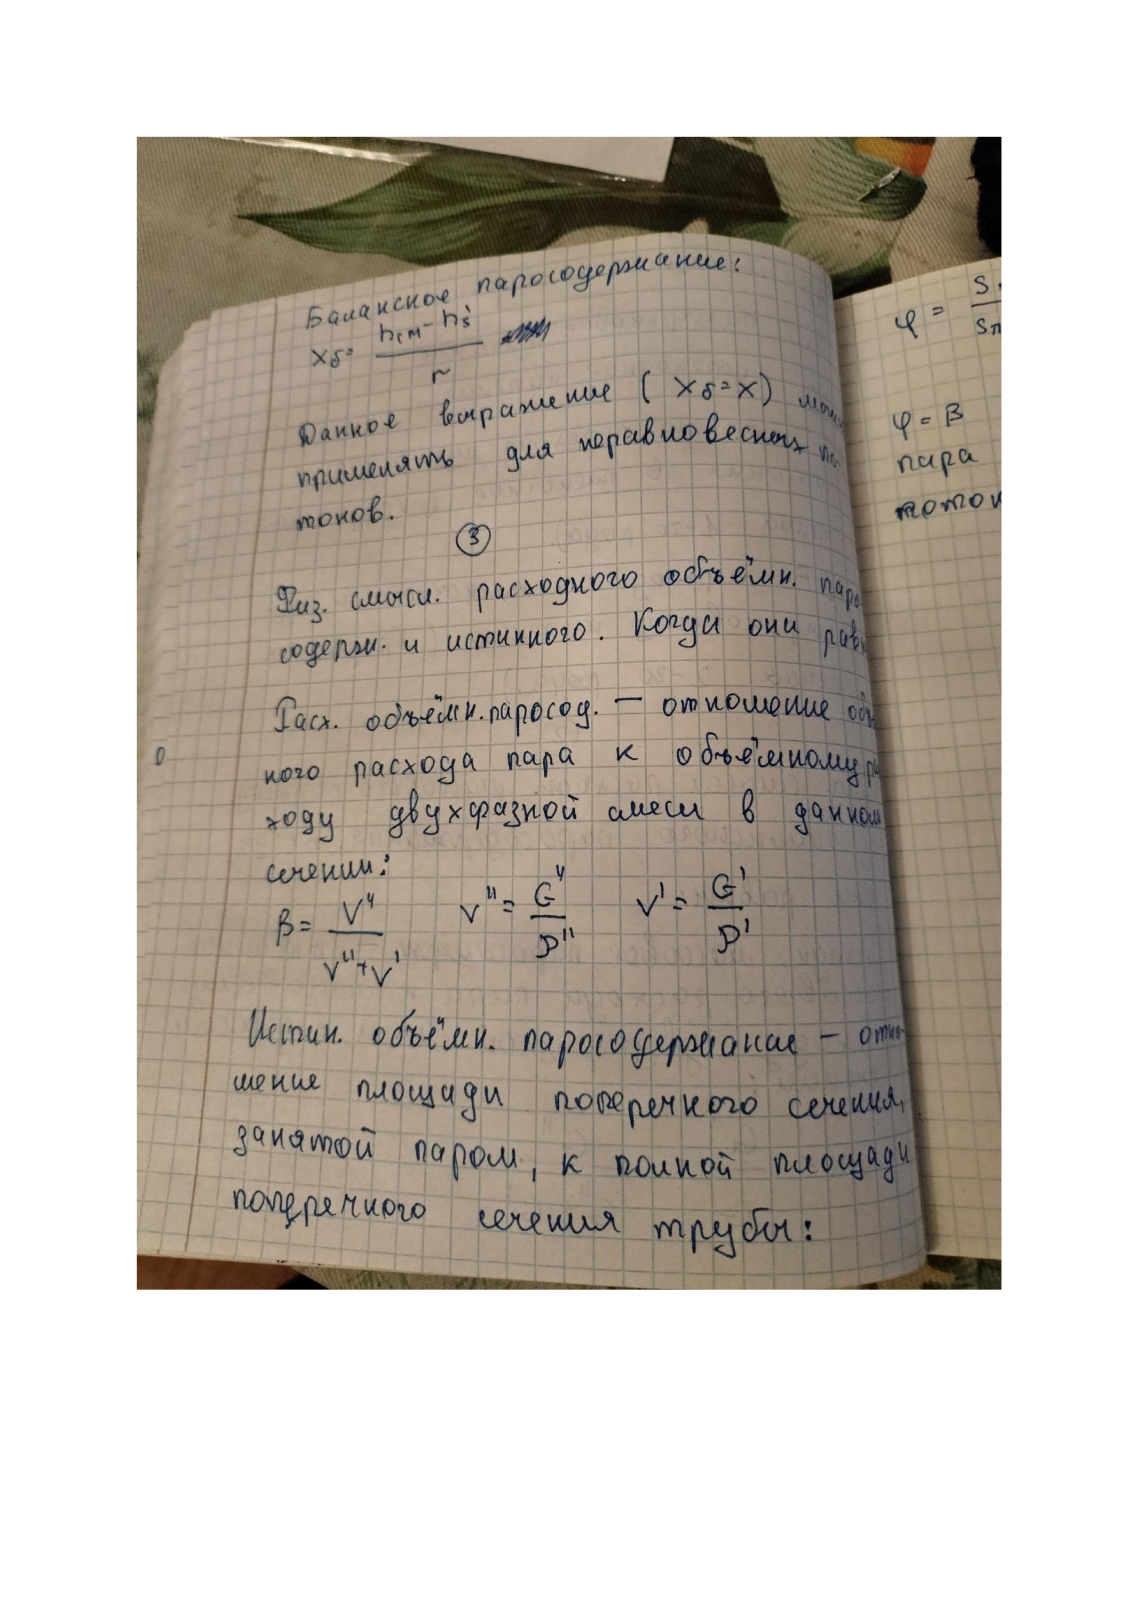 Балансное паросодержание:
xб = (hсм - h's) / r
Данное выражение (xб = x)
применять для неравновесных по-
токов.
3
Физ. смысл. расходного объёмн. паро
содерж. и истинного. Когда они рав
Расх. объёмн. паросод. — отношение объ
ного расхода пара к объёмному ра
ходу двухфазной смеси в данном
сечении:
β = V'' / (V'' + V')    V'' = G'' / ρ''    V' = G' / ρ'
Истин. объёмн. паросодержание — отно-
шение площади поперечного сечения,
занятой паром, к полной площади
поперечного сечения трубы:
φ = S / Sп
φ = β
пара
поток